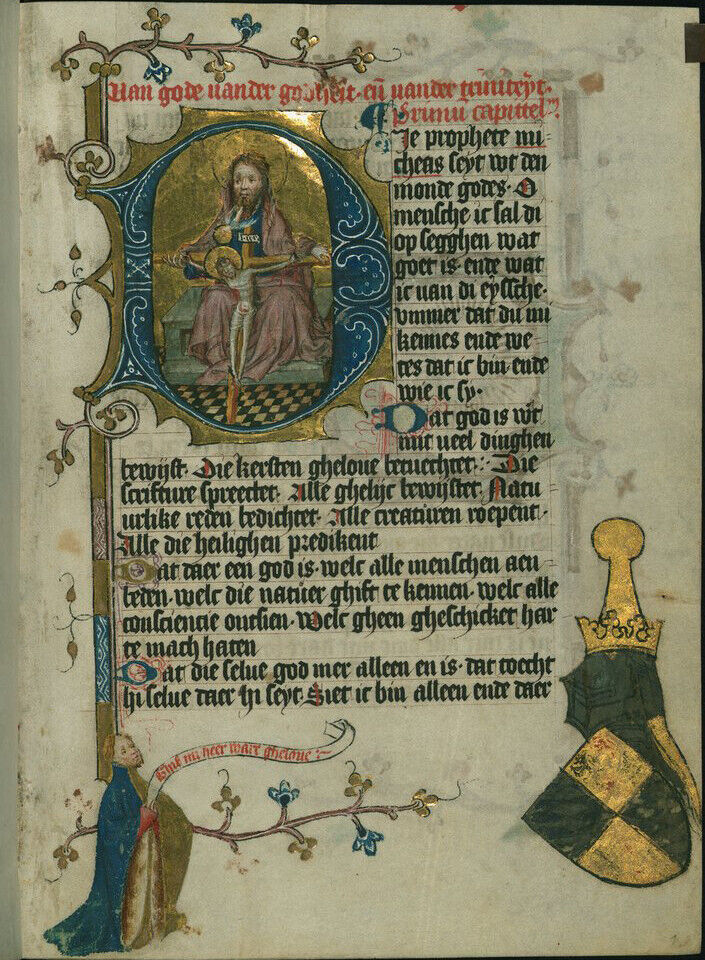 Uan gode uander godheit · eñ uander triniteyt ·
Primũ capittel
Ie prophete mi-
cheas seyt wt den
monde godes · O
mensche ic sal di
op segghen wat
goet is · ende wat
ic uan di eyssche ·
ummer dat du mi
kennes ende we-
tes dat ic bin ende
wie ic sy ·
Dat god is wt
mit ueel dinghen
bewijst · Die kersten gheloue betuechtet · Die
scrifture spreectet · Alle ghelijc bewijstet · Natu
urlike reden bedichtet · Alle creaturen roepent ·
Alle die heilighen predikent
Dat daer een god is · welc alle menschen aen
beden · welc die natuer ghift te kennen · welc alle
consciencie ontsien · welc gheen gheschicket har
te mach haten
Dat die selue god mer alleen en is · dat toecht
hi selue daer hi seyt Siet ic bin alleen ende daer
mi heer waer gheloue